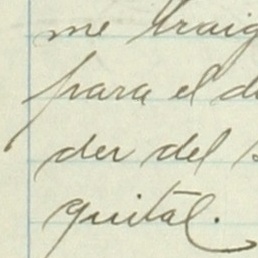 me traig
para el d
der del
quital.